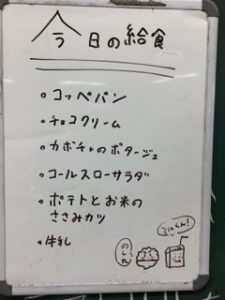 今日の給食
コッペパン
チョコクリーム
カボチャのポタージュ
コールスローサラダ
ポテトとお米の
ささみカツ
牛乳